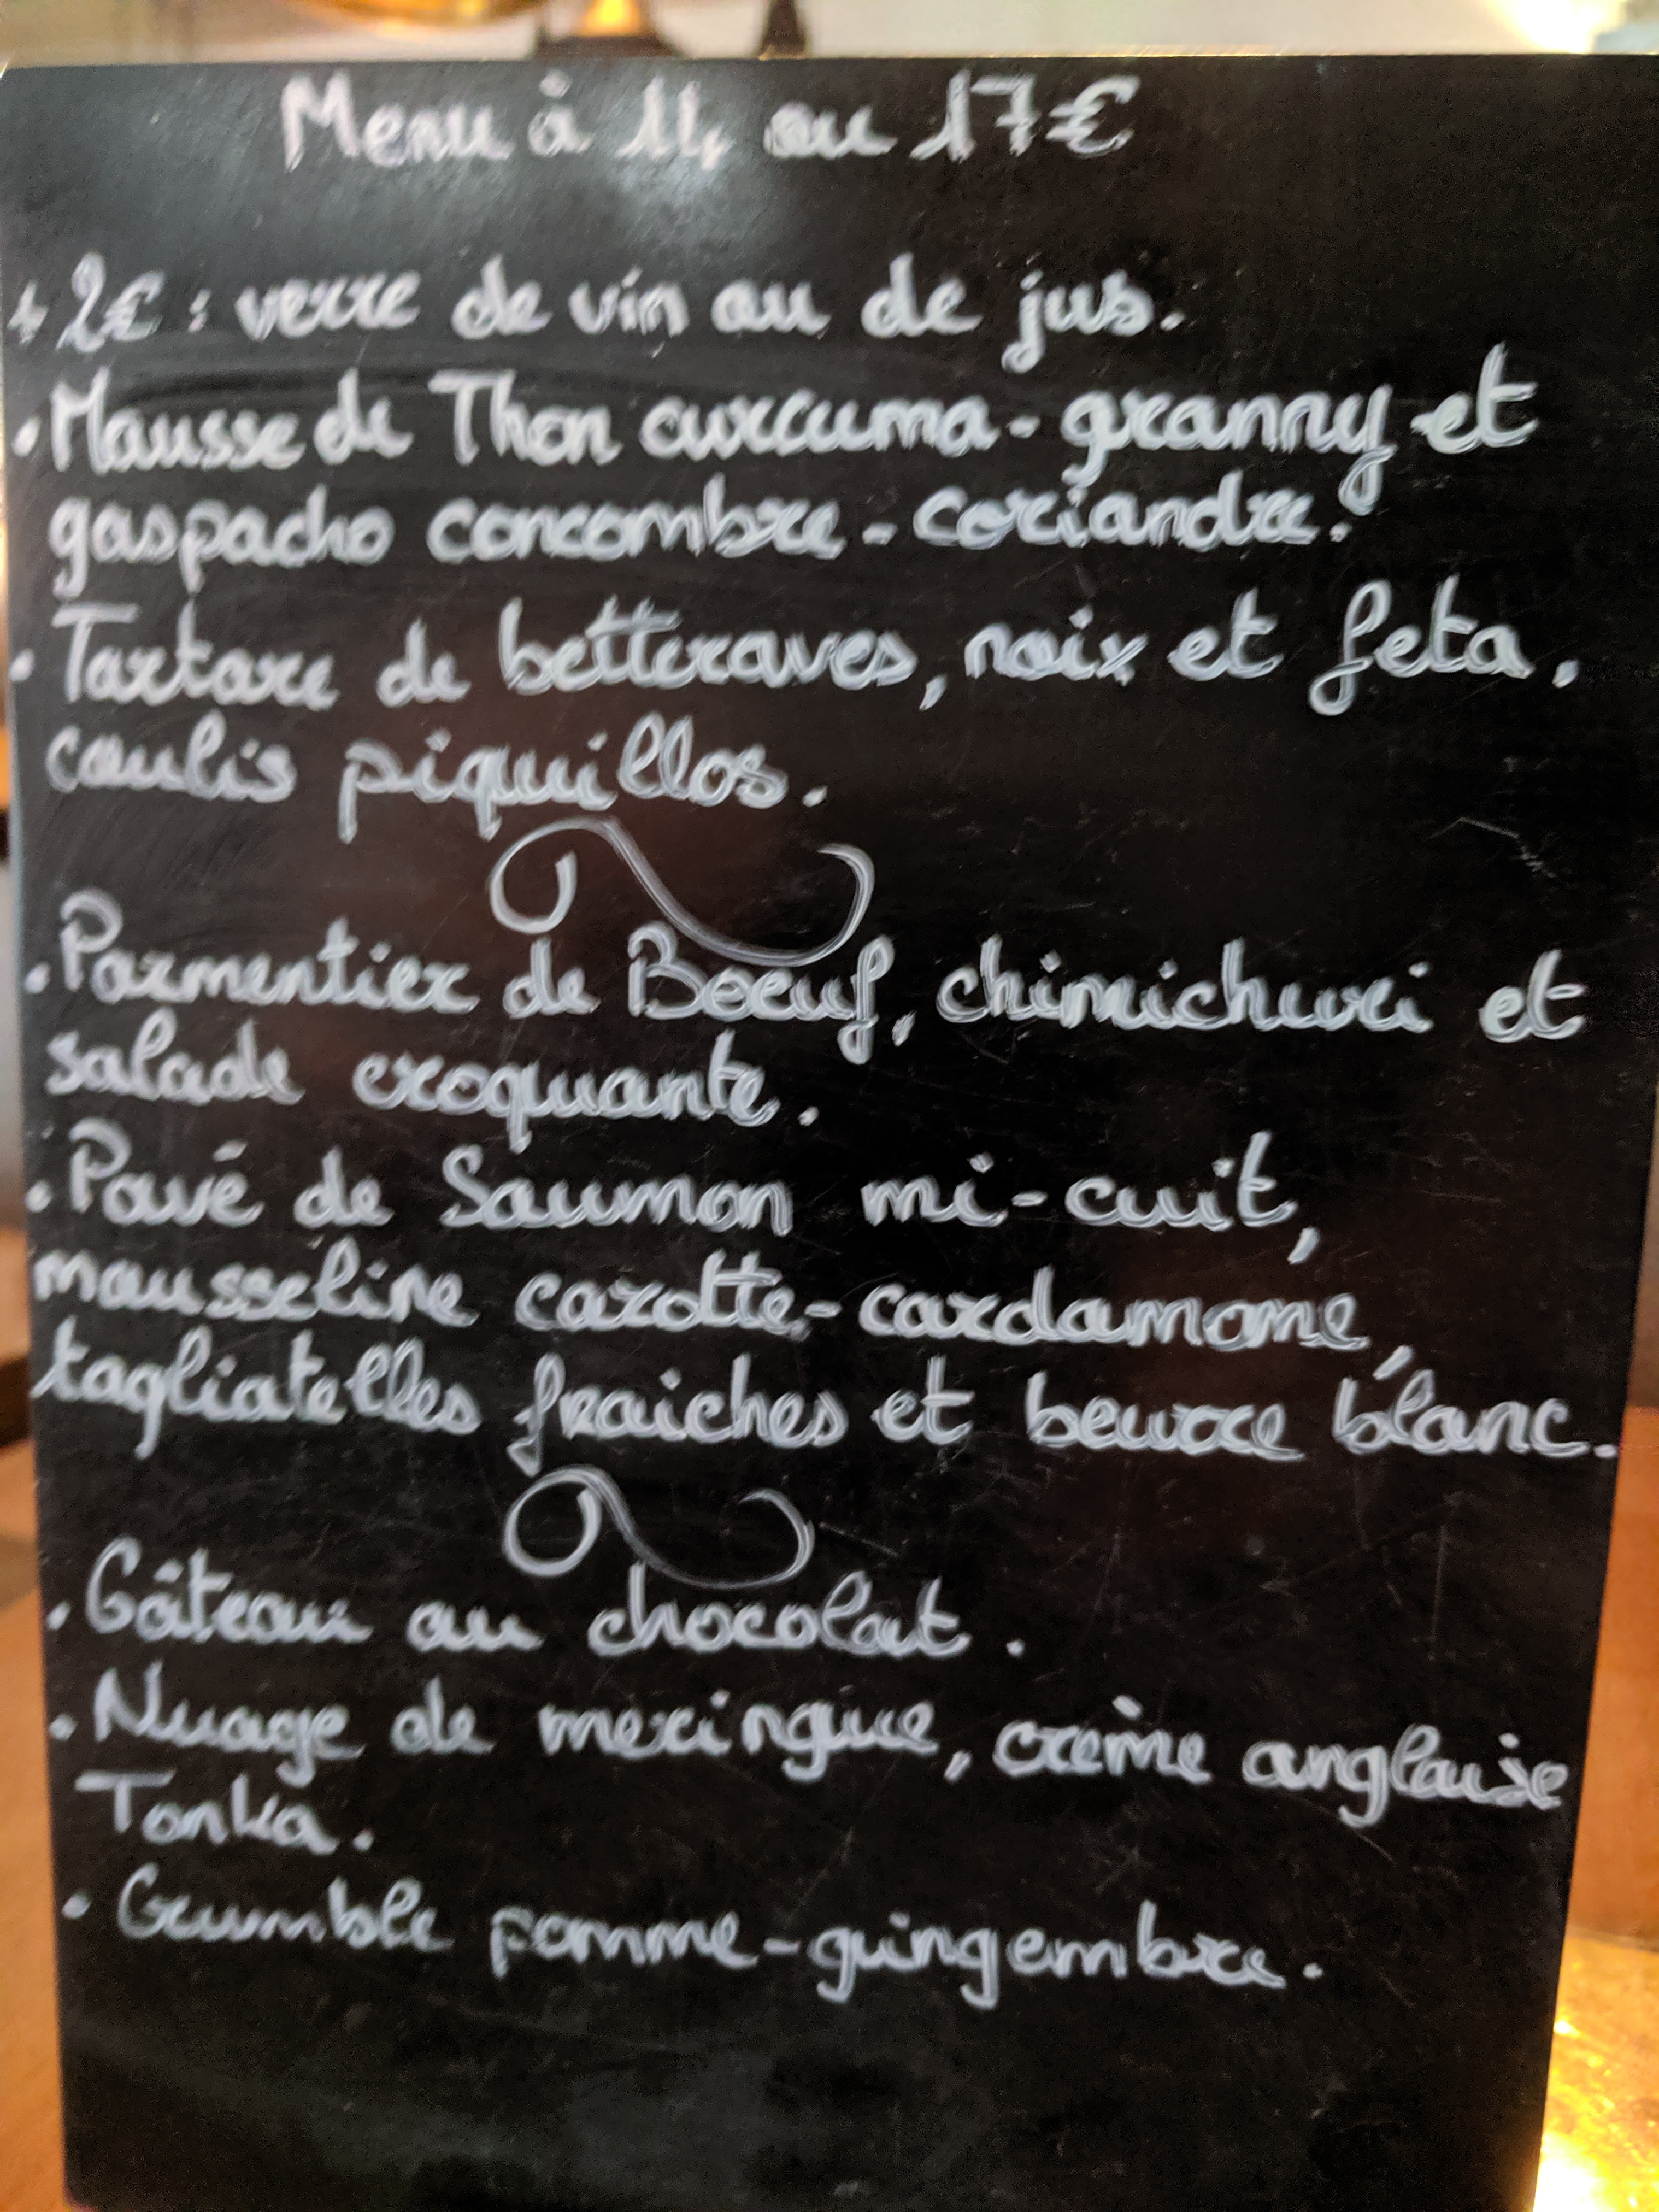 Menu à 14 ou 17€
+ 2€ : verre de vin ou de jus.
. Mousse de Thon curcuma - granny et
gaspacho concombre - coriandre.
. Tartare de betteraves, noix et feta.
coulis piquillos.
. Parmentier de Boeuf, chimichuri et
salade croquante.
. Pavé de Saumon mi-cuit,
mousseline carotte - cardamome,
tagliatelles fraiches et beurre blanc.
. Gâteau au chocolat.
. Nuage de meringue, crème anglaise
Tonka.
. Crumble pomme - gingembre.